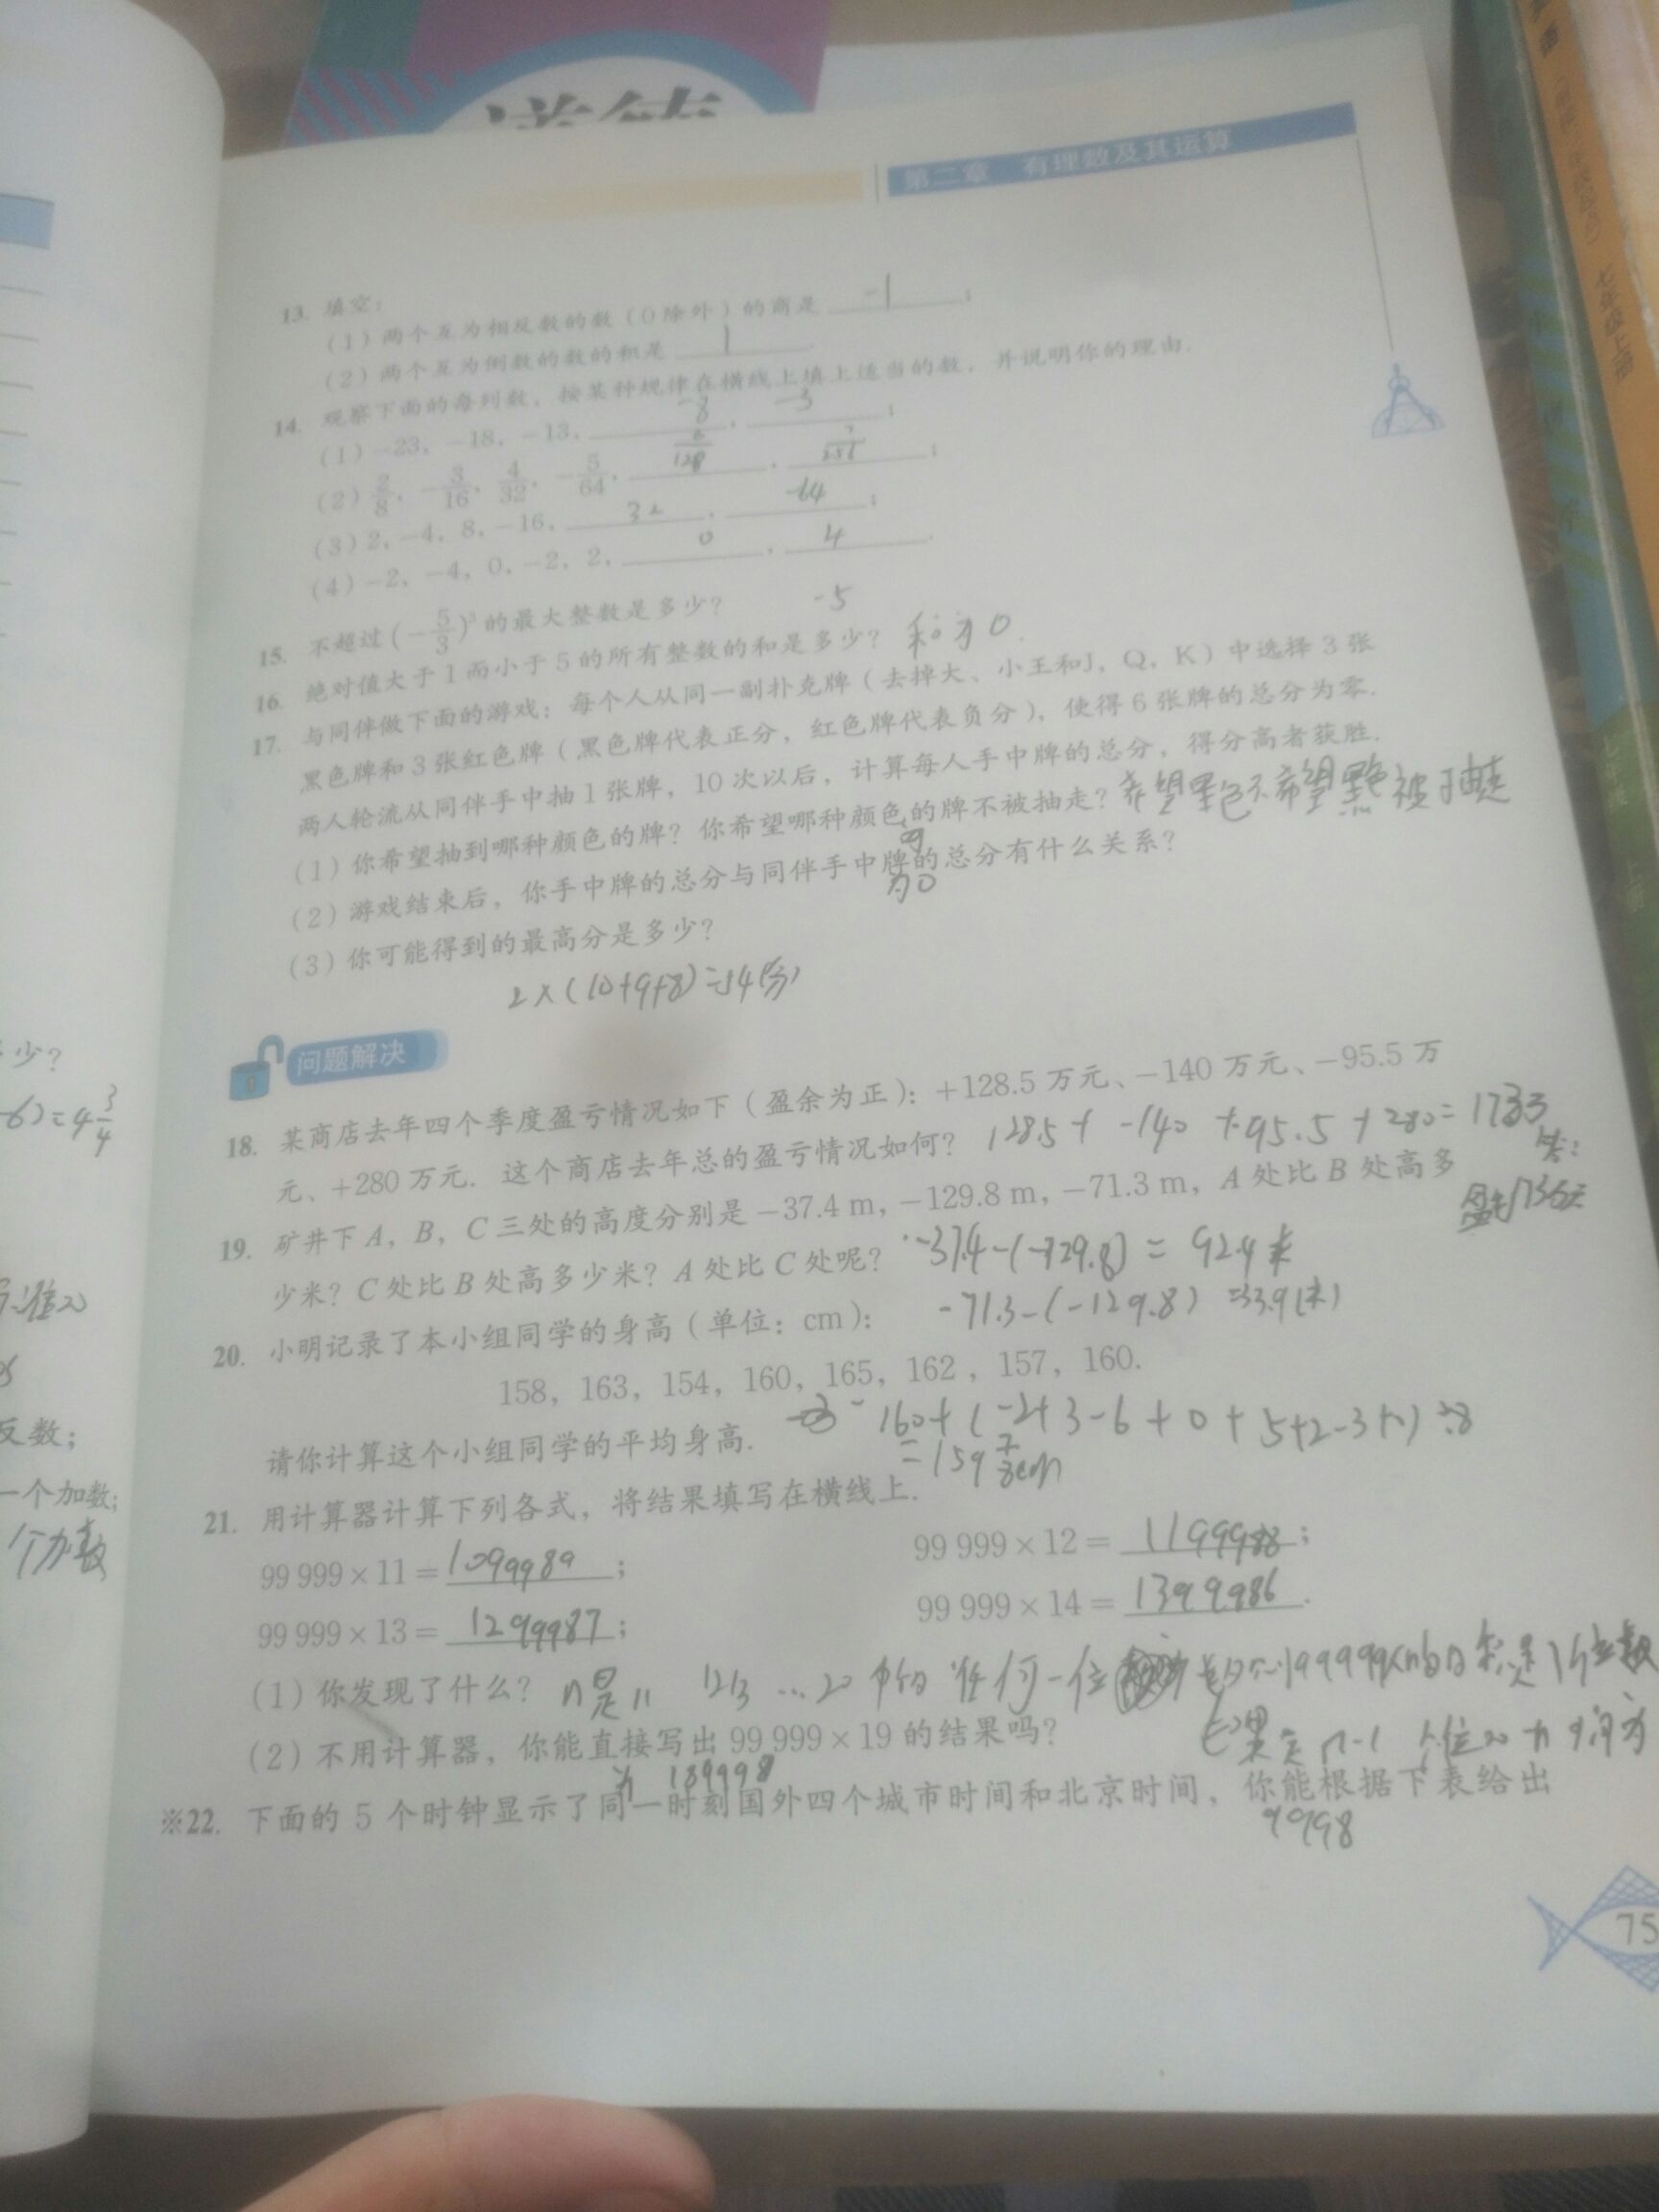 第二章 有理数及其运算
13. 填空：
(1) 两个互为相反数的数（0除外）的商是 -1 ；
(2) 两个互为倒数的数的积是 1 .
14. 观察下面的每列数，按某种规律在横线上填上适当的数，并说明你的理由.
(1) -23, -18, -13, -8 , -3 ；
(2) 2/8, -3/16, 4/32, -5/64, 6/128 , 7/256 ；
(3) 2, -4, 8, -16, 32 , -64 ；
(4) -2, -4, 0, -2, 2, 0 , 4 .
15. 不超过(-5/3)³的最大整数是多少？ -5
16. 绝对值大于1而小于5的所有整数的和是多少？ 和为0.
17. 与同伴做下面的游戏：每个人从同一副扑克牌（去掉大、小王和J，Q，K）中选择3张
黑色牌和3张红色牌（黑色牌代表正分，红色牌代表负分），使得6张牌的总分为零.
两人轮流从同伴手中抽1张牌，10次以后，计算每人手中牌的总分，得分高者获胜.
(1) 你希望抽到哪种颜色的牌？你希望哪种颜色的牌不被抽走？ 希望黑色不希望黑色被抽走
(2) 游戏结束后，你手中牌的总分与同伴手中牌的总分有什么关系？
为0
(3) 你可能得到的最高分是多少？
2×(10+9+8)=54(分)
问题解决
18. 某商店去年四个季度盈亏情况如下（盈余为正）：+128.5万元、-140万元、-95.5万
元、+280万元. 这个商店去年总的盈亏情况如何？ 128.5+ -140 +-95.5+280=1733
答：
19. 矿井下A，B，C三处的高度分别是-37.4 m，-129.8 m，-71.3 m，A处比B处高多
少米？C处比B处高多少米？A处比C处呢？ -37.4-(-129.8) = 92.4米
-71.3-(-129.8) =33.9(米)
20. 小明记录了本小组同学的身高（单位：cm）：
158，163，154，160，165，162，157，160.
请你计算这个小组同学的平均身高. 160+(-2+3-6+0+5+2-3+0)÷8
=159 7/8cm
21. 用计算器计算下列各式，将结果填写在横线上.
99 999×11= 1099989 ；
99 999×12= 1199988 ；
99 999×13= 1299987 ；
99 999×14= 1399986 .
(1) 你发现了什么？ n是11 12 13 …20中的任何一位
(2) 不用计算器，你能直接写出99 999×19的结果吗？
为 189998
※22. 下面的5个时钟显示了同一时刻国外四个城市时间和北京时间，你能根据下表给出
9998
75
少？
-6)=4 3/4
反数；
一个加数；
个加数
七年级上册